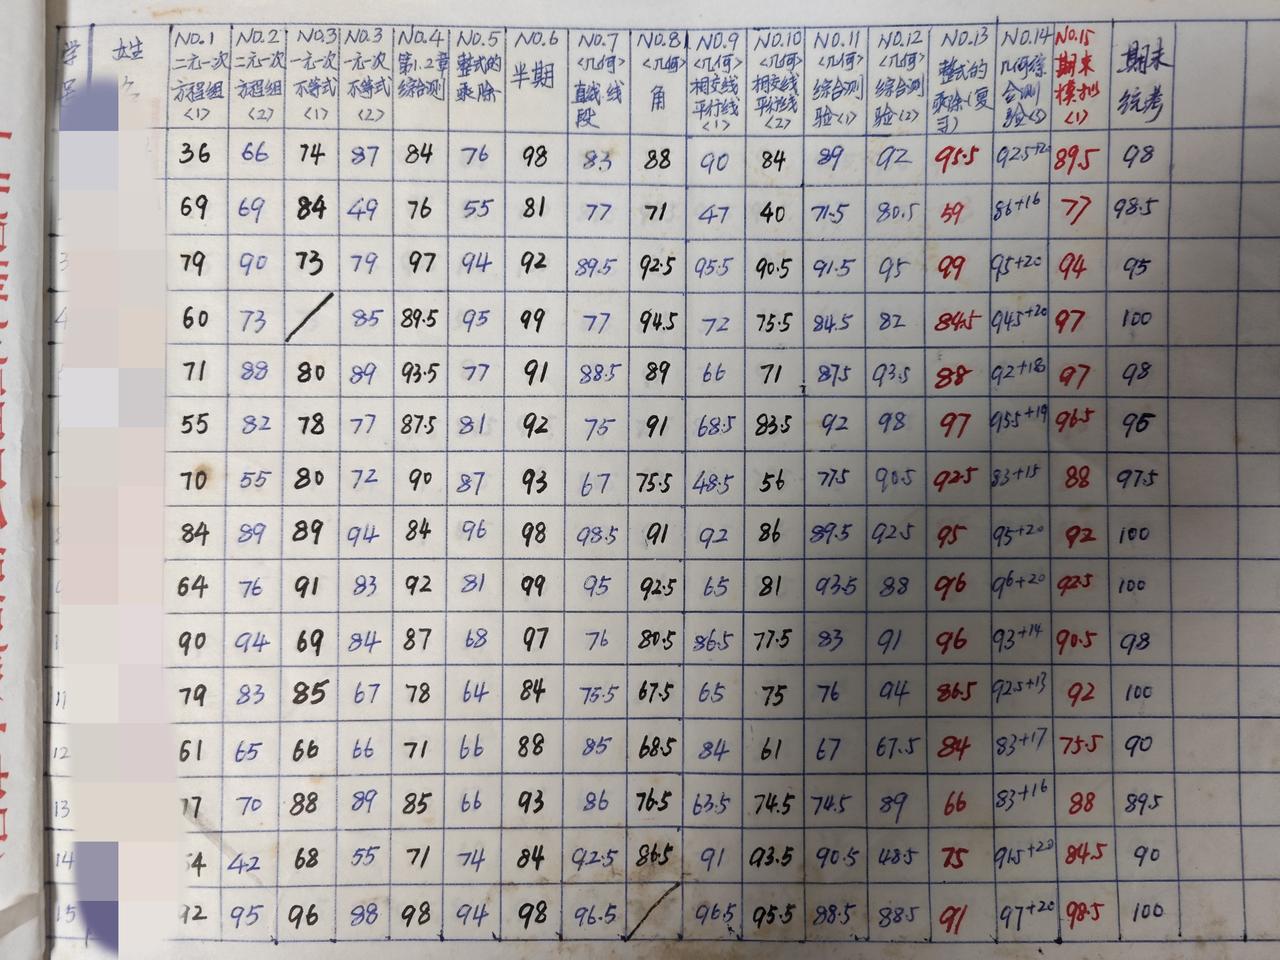 学 姓 NO.1 NO.2 NO.3 NO.3 NO.4 NO.5 NO.6 NO.7 NO.8 NO.9 NO.10 NO.11 NO.12 NO.13 NO.14 NO.15 期末
二元一次 二元一次 一元一次 一元一次 第1.2章 整式的 半期 <几何> <几何> <几何> <几何> <几何> <几何> 整式的 几何综 期末 统考
方程组 方程组 不等式 不等式 综合测 乘除 直线.线 角 相交线 相交线 综合测 综合测 乘除(复 合测 模拟
<1> <2> <1> <2> 段 平行线 平行线 验<1> 验<2> 习) 验<3> <1>
<1> <2>
36 66 74 87 84 76 98 83 88 90 84 89 92 95.5 92.5+20 89.5 98
69 69 84 49 76 55 81 77 71 47 40 71.5 80.5 59 86+16 77 98.5
3 79 90 73 79 97 94 92 89.5 92.5 95.5 90.5 91.5 95 99 95+20 94 95
4 60 73 / 85 89.5 95 99 77 94.5 72 75.5 84.5 82 84.5 94.5+20 97 100
71 88 80 89 93.5 77 91 88.5 89 66 71 87.5 93.5 88 92+18 97 98
55 82 78 77 87.5 81 92 75 91 68.5 83.5 92 98 97 95.5+19 96.5 95
70 55 80 72 90 87 93 67 75.5 48.5 56 77.5 90.5 92.5 83+15 88 97.5
84 89 89 94 84 96 98 98.5 91 92 86 89.5 92.5 95 95+20 92 100
64 76 91 83 92 81 99 95 92.5 65 81 93.5 88 96 96+20 92.5 100
90 94 69 84 87 68 97 76 80.5 86.5 77.5 83 91 96 93+14 90.5 98
11 79 83 85 67 78 64 84 75.5 67.5 65 75 76 94 86.5 92.5+13 92 100
12 61 65 66 66 71 66 88 85 68.5 84 61 67 67.5 84 83+17 75.5 90
13 77 70 88 89 85 66 93 86 76.5 63.5 74.5 74.5 89 66 83+16 88 89.5
14 54 42 68 55 71 74 84 92.5 86.5 91 93.5 90.5 48.5 75 91.5+20 84.5 90
15 92 95 96 88 98 94 98 96.5 / 96.5 95.5 88.5 88.5 91 97+20 98.5 100